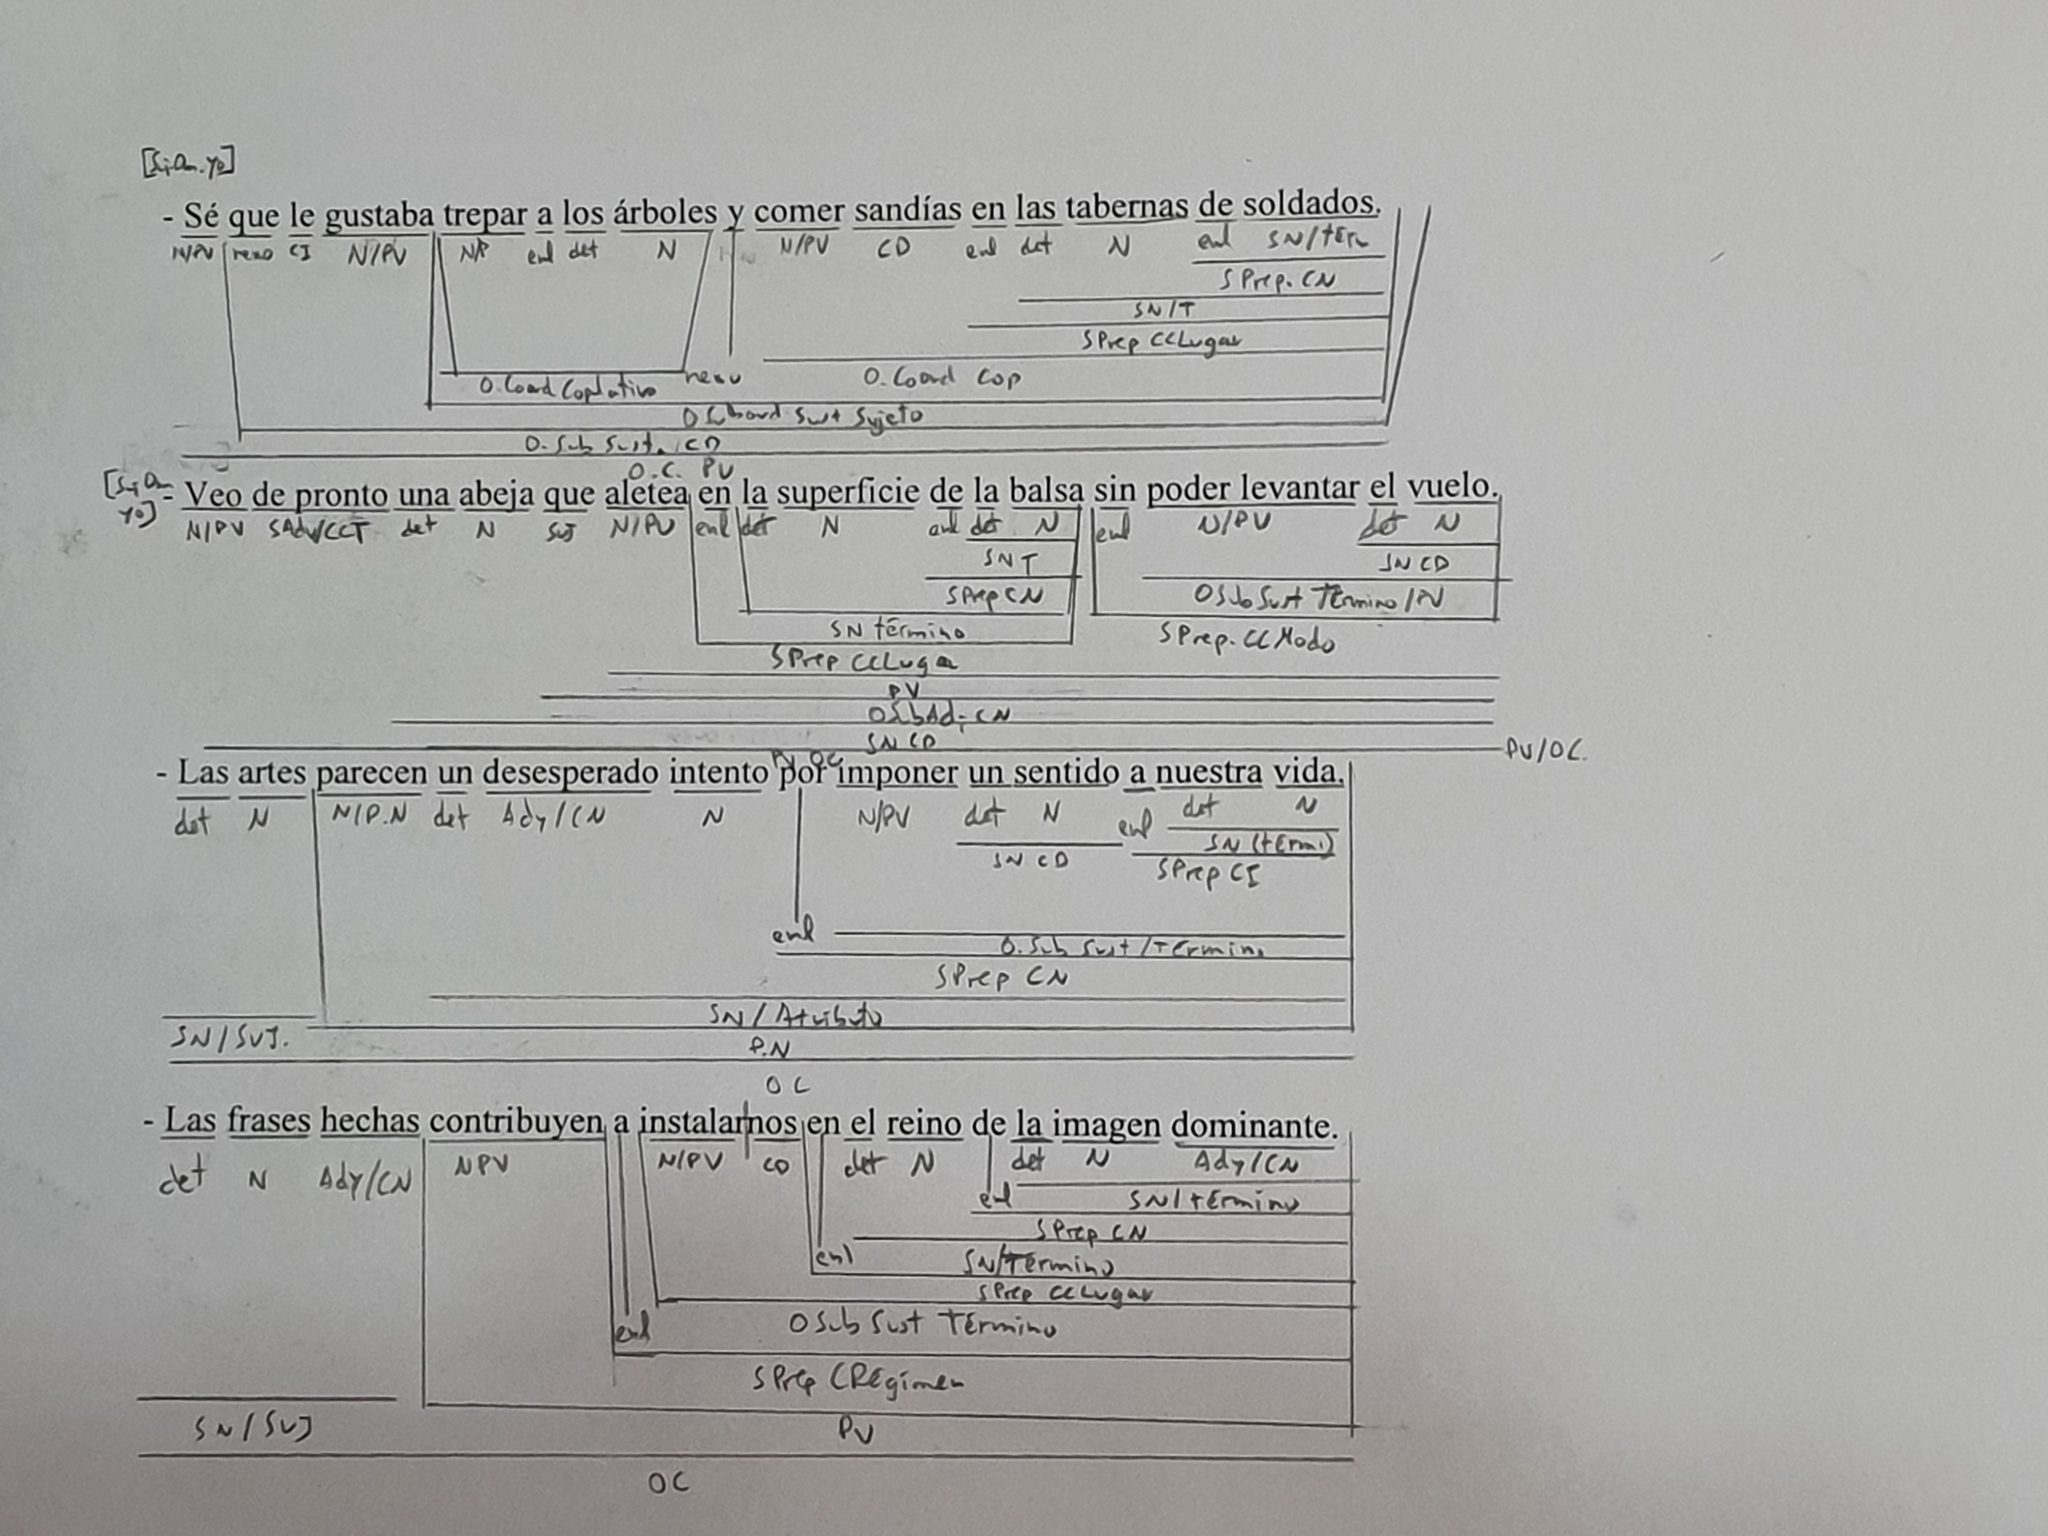 [S.Om. yo]
- Sé que le gustaba trepar a los árboles y comer sandías en las tabernas de soldados.
N/PV nexo CI N/PV N/P enl det N N/PV CD enl det N enl SN/térm
SPrep. CN
SN/T
SPrep CCLugar
O. Coord Coplativa nexo O. Coord Cop
Sust Sujeto
O. Sub Sust. CD
O.C. PV
[S. Om yo]
- Veo de pronto una abeja que aletea en la superficie de la balsa sin poder levantar el vuelo.
N/PV SAdv/CCT det N SUJ N/PV enl det N enl det N enl N/PV det N
SN T SN CD
SPrep CN OSub Sust Término/PV
SN término SPrep. CCModo
SPrep CCLugar
PV
OSubAdj CN
SN CD
PV/OC.
- Las artes parecen un desesperado intento por imponer un sentido a nuestra vida.
det N N/P.N det Ady/CN N N/PV det N enl det N
SN CD SN (térmi)
SPrep CI
enl O. Sub Sust/Término
SPrep CN
SN/Atributo
SN/SUJ. P.N
OC
- Las frases hechas contribuyen a instalarnos en el reino de la imagen dominante.
det N Ady/CN NPV N/PV CD det N det N Ady/CN
enl SN/término
SPrep CN
enl SN/Término
SPrep CCLugar
enl OSub Sust Término
SPrep CRégimen
SN/SUJ PV
OC